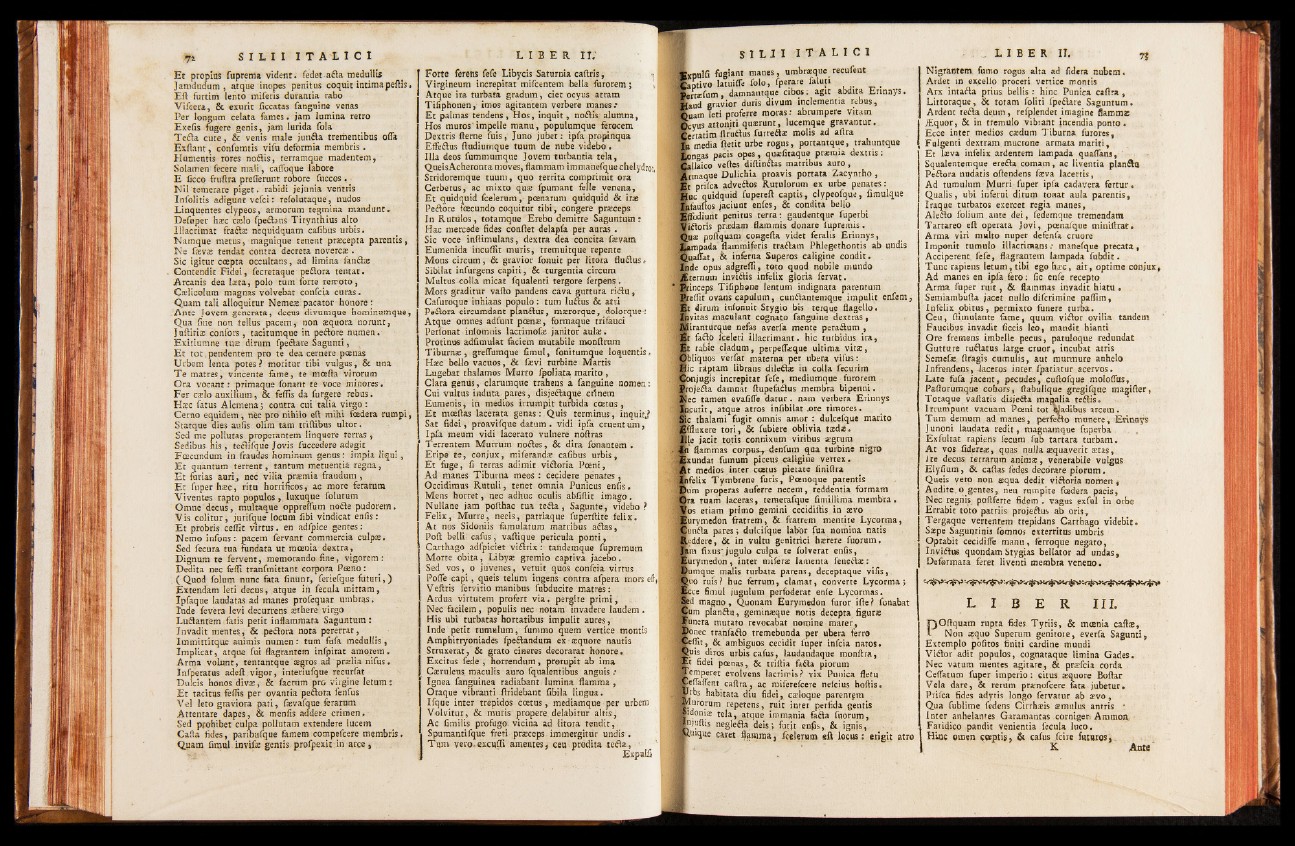 72 SILII ITALICI
Et propius suprema vident. sedet acta medullis
Jamdudum, atque inopes penitus coquit intima pestis.
Est furtim lento miseris durantia rabo
Viscera, & exurit siccatas sanguine venas
Per longum celata fames. jam lumina retro
Exesis fugere genis, jam lurida sola
Tecta cute, & venis male juncta trementibus ossa
Exstant, consumtis visu deformia membris.
Humentis rores noctis, terramque madentem,
Solamen fecere mali, cassoque labore
E sicco frustra presserunt robore succos.
Nil temerare piget. rabidi jejunia ventris
Insolitis adigunt vesci: resolutaque, nudos
Linquentes clypeos, armorum tegmina mandunt.
Desuper hæc cælo spectans Tirynthius alto
Illacrimat fractæ nequidquam casibus urbis.
Namque metus, magnique tenent præcepta parentis,
Ne sævæ tendat contra decreta novercæ.
Sic igitur cœpta occultans, ad limina sanctæ
Contendit Fidei, secretaque pectora tentat.
Arcanis dea læta, polo tum forte remoto,
Cælicolum magnos volvebat conscia curas.
Quam tali alloquitur Nemeæ pacator honore:
Ante Jovem generata, decus divumque hominumque,
Qua sine non tellus pacem, non æquora norunt,
Justitiæ consors, tacitumque in pectore numen.
Exitiumne tuæ dirum spectare Sagunti,
Et tot pendentem pro te dea cernere pœnas
Urbem lenta potes? moritur tibi vulgus, & una
Te matres, vincente fame, te mœsta virorum
Ora vocant: primaque sonant te voce minores.
Fer cælo auxilium, & fessis da surgere rebus.
Hæc satus Alcmena; contra cui talia virgo:
Cerno equidem, nec pro nihilo est mihi fœdera rumpi,
Statque dies ausis olim tam tristibus ultor.
Sed me pollutas properantem linquere terras,
Sedibus his, tectisque Jovis succedere adegit
Fœcundum in fraudes hominum genus: impia liqui,
Et quantum terrent, tantum metuentia regna,
Et furias auri, nec vilia præmia fraudum,
Et super hæc, ritu horrificos, ac more ferarum
Viventes rapto populos, luxuque solutum
Omne decus, multaque oppressum nocte pudorem.
Vis colitur, jurisque locum sibi vindicat ensis:
Et probris cessit virtus. en adspice gentes:
Nemo insons: pacem servant commercia culpæ.
Sed secura tua fundata ut mœnia dextra,
Dignum te servent, memorando fine, vigorem:
Dedita nec fessi transmittant corpora Pœno:
(Quod solum nunc fata sinunt, seriesque futuri,)
Extendam leti decus, atque in secula mittam,
Ipsaque laudatas ad manes prosequar umbras.
Inde severa levi decurrens æthere virgo
Luctantem fatis petit inflammata Saguntum:
Invadit mentes, & pectora nota pererrat,
Immittitque animis numen: tum fusa medullis,
Implicat, atque sui flagrantem inspirat amorem.
Arma volunt, tentantque ægros ad prælia nisus.
Insperatus adest vigor, interiusque recursat
Dulcis honos divæ, & sacrum pro virgine letum:
Et tacitus fessis per ovantia pectora sensus
Vel leto graviora pati, sævasque ferarum
Attentare dapes, & mensis addere crimen.
Sed prohibet culpa pollutam extendere lucem
Casta fides, paribusque famem compescere membris.
Quam simul invisæ gentis prospexit in arce,
LIBER II.
Forte ferens sese Libycis Saturnia castris,
Virgineum increpitat miscentem bella furorem;
Atque ira turbata gradum, ciet ocyus atram
Tisiphonen, imos agitantem verbere manes:
Et palmas tendens, Hos, inquit, noctis alumna,
Hos muros impelle manu, populumque ferocem
Dextris sterne suis, Juno jubet: ipsa propinqua
Effectus studiumque tuum de nube videbo.
Illa deos summumque Jovem turbantia tela,
Queis Acheronta moves, flammam immanesque chelydros,
Stridoremque tuum, quo territa comprimit ora
Cerberus, ac mixto quæ spumant felle venena,
Et quidquid scelerum, pœnarum quidquid & iræ
Pectore fœcundo coquitur tibi, congere præceps
In Rutulos, totamque Erebo demitte Saguntum:
Hac mercede fides constet delapsa per auras.
Sic voce instimulans, dextra dea concita sævam
Eumenida incussit muris, tremuitque repente
Mons circum, & gravior sonuit per litora fluctus.
Sibilat insurgens capiti, & turgentia circum
Multus colla micat squalenti tergore serpens.
Mors graditur vasto pandens cava guttura rictu,
Casuroque inhians populo: tum luctus & atri
Pectora circumdant planctus, mærorque, dolorque:
Atque omnes adsunt pœnæ, formaque trifauci
Personat insomnis lacrimosæ janitor aulæ.
Protinus adsimulat faciem mutabile monstrum
Tiburnæ, gressumque simul, sonitumque loquentis.
Hæc bello vacuos, & sævi turbine Martis
Lugebat thalamos Murro spoliata marito,
Clara genus, clarumque trahens a sanguine nomen:
Cui vultus induta pares, disjectaque crinem
Eumenis, in medios irrumpit turbida cœtus,
Et mœstas lacerata genas: Quis terminus, inquit,?
Sat fidei, proavisque datum. vidi ipsa cruentum,
Ipsa meum vidi lacerato vulnere nostras
Terrentem Murrum noctes, & dira sonantem.
Eripe te, conjux, miserandæ casibus urbis,
Et fuge, si terras adimit victoria Pœni,
Ad manes Tiburna meos: cecidere penates,
Occidimus Rutuli, tenet omnia Punicus ensis.
Mens horret, nec adhuc oculis absistit imago.
Nullane jam posthac tua tecta, Sagunte, videbo?
Felix, Murre, necis, patriaque superstite felix.
At nos Sidoniis famulatum matribus actas,
Post belli casus, vastique pericula ponti,
Carthago adspiciet victrix: tandemque supremum
Morte obita, Libyæ gremio captiva jacebo.
Sed vos, o juvenes, vetuit quos conscia virtus
Posse capi, queis telum ingens contra aspera mors est,
Vestris servitio manibus subducite matres:
Ardua virtutem profert via. pergite primi,
Nec facilem, populis nec notam invadere laudem.
His ubi turbatas hortatibus impulit aures,
Inde petit tumulum, summo quem vertice montis
Amphitryoniades spectandum ex æquore nautis
Struxerat, & grato cineres decorarat honore.
Excitus sede, horrendum, prorupit ab ima
Cærulens maculis auro squalentibus anguis:
Ignea sanguinea radiabant lumina flamma,
Oraque vibranti stridebant sibila lingua.
Isque inter trepidos cœtus, mediamque per urbem
Volvitur, & muris propere delabitur altis,
Ac similis profugo vicina ad litora tendit,
Spumantisque freti præceps immergitur undis.
Tum vero excussi amentes, ceu prodita tectæ,
Expulsi
SILII ITALICI
Expulsi fugiant manes, umbræque recusent
Captivo latuisse solo, sperare saluti
Pertæsum, damnantque cibos: agit abdita Erinnys.
Haud gravior duris divum inclementia rebus,
Quam leti proferre moras: abrumpere vitam
Ocyus attoniti quærunt, lucemque gravantur.
Certatim structus surrectæ molis ad astra
In media stetit urbe rogus, portantque, trahuntque
Longas pacis opes, quæsitaque præmia dextris:
Callaico vestes distinctas matribus auro,
Armaque Dulichia proavis portata Zacyntho,
Et prisca advectos Rutulorum ex urbe penates:
Huc quidquid superest captis, clypeosque, simulque
Infaustos jaciunt enses, & condita bello
Effodiunt penitus terra: gaudentque superbi
Victoris prædam flammis donare supremis.
Quæ postquam congesta videt feralis Erinnys,
Lampada flammiferis tractam Phlegethontis ab undis
Quassat, & inferna Superos caligine condit.
Inde opus adgressi, toto quod nobile mundo
Æternum invictis infelix gloria servat.
Princeps Tisiphone lentum indignata parentum
Pressit ovans capulum, cunctantemque impulit ensem,
Et dirum insonuit Stygio bis terque flagello.
Invitas maculant cognato sanguine dextras,
Miranturque nefas aversa mente peractum,
Et facto sceleri illacrimant. hic turbidus ira,
Et rabie cladum, perpessæque ultima vitæ,
Obliquos versat materna per ubera visus:
Hic raptam librans dilectæ in colla securim
Conjugis increpitat sese, mediumque furorem
Projecta damnat stupefactus membra bipenni.
Nec tamen evasisse datur. nam verbera Erinnys
Incutit, atque atros insibilat ore timores.
Sic thalami fugit omnis amor: dulcesque marito
Effluxere tori, & subiere oblivia tædæ.
Ille jacit totis connixum viribus ægrum
In flammas corpus, densum qua turbine nigro
Exundat fumum piceus caligine vertex.
At medios inter cœtus pietate sinistra
Infelix Tymbrene furis, Pœnoque parentis
Dum properas auferre necem, reddentia formam
Ora tuam laceras, temerasque simillima membra.
Vos etiam primo gemini cecidistis in ævo
Eurymedon fratrem, & fratrem mentite Lycorma,
Cuncta pares; dulcisque labor sua nomina natis
Reddere, & in vultu genitrici hærere suorum.
Jam fixus jugulo culpa te solverat ensis,
Eurymedon, inter miseræ lamenta senectæ:
Dumque malis turbata parens, deceptaque visis,
Quo ruis? huc ferrum, clamat, converte Lycorma;
Ecce simul jugulum perfoderat ense Lycormas.
Sed magno, Quonam Eurymedon furor iste? sonabat
Cum planctu, geminæque notis decepta figuræ
Funera mutato revocabat nomine mater,
Donec transacto tremebunda per ubera ferro
Cessit, & ambiguos cecidit super inscia natos.
Quis diros urbis casus, laudandaque monstra,
Et fidei pœnas, & tristia facta piorum
Temperet evolvens lacrimis? vix Punica fletu
Cessassent castra, ac miserescere nescius hostis.
Urbs habitata diu fidei, cæloque parentem
Murorum repetens, ruit inter perfida gentis
Sidoniæ tela, atque immania facta suorum,
Injustis neglecta deis; furit ensis, & ignis,
Quique caret flamma, scelerum est locus: erigit atro
LIBER II. 73
Nigrantem fumo rogus alta ad sidera nubem.
Ardet in excelso proceri vertice montis
Arx intacta prius bellis: hinc Punica castra,
Littoraque, & totam soliti spectare Saguntum.
Ardent tecta deum, resplendet imagine flammæ
Æquor, & in tremulo vibrant incendia ponto.
Ecce inter medios cædum Tiburna furores,
Fulgenti dextram mucrone armata mariti,
Et læva infelix ardentem lampada quassans,
Squalentemque erecta comam, ac liventia planctu
Pectora nudatis ostendens sæva lacertis,
Ad tumulum Murri super ipsa cadavera fertur.
Qualis, ubi inferni dirum tonat aula parentis,
Iraque turbatos exercet regia manes,
Alecto solium ante dei, sedemque tremendam
Tartareo est operata Jovi, pœnasque ministrat.
Arma viri multo nuper defensa cruore
Imponit tumulo illacrimans: manesque precata,
Acciperent sese, flagrantem lampada subdit.
Tunc rapiens letum, tibi ego hæc, ait, optime conjux,
Ad manes en ipsa fero: sic ense recepto
Arma super ruit, & flammas invadit hiatu.
Semiambusta jacet nullo discrimine passim,
Infelix obitus, permixto funere turba.
Ceu, stimulante fame, quum victor ovilia tandem
Faucibus invadit siccis leo, mandit hianti
Ore fremens imbelle pecus, patuloque redundat
Gutture ructatus large cruor, incubat atris
Semesæ stragis cumulis, aut murmure anhelo
Infrendens, laceros inter spatiatur acervos.
Late fusa jacent, pecudes, custosque molossus,
Pastorumque cohors, stabulique gregisque magister,
Totaque vastatis disjecta magalia tectis.
Irrumpunt vacuam Pœni tot cladibus arcem.
Tum demum ad manes, perfecto munere, Erinnys
Junoni laudata redit, magnamque superba
Exsultat rapiens secum sub tartara turbam.
At vos sidereæ, quas nulla æquaverit ætas,
Ite decus terrarum animæ, venerabile vulgus
Elysium, & castas sedes decorate piorum.
Queis vero non æqua dedit victoria nomen,
Audite o gentes, neu rumpite fœdera pacis,
Nec regnis postferre fidem. vagus exsul in orbe
Errabit toto patriis projectus ab oris,
Tergaque vertentem trepidans Carthago videbit.
Sæpe Saguntinis somnos exterritus umbris
Optabit cecidisse manu, ferroque negato,
Invictus quondam Stygias bellator ad undas,
Deformata feret liventi membra veneno.
LIBER III.
POstquam rupta fides Tyriis, & mœnia castæ,
Non æquo Superum genitore, eversa Sagunti,
Extemplo positos finiti cardine mundi
Victor adit populos, cognataque limina Gades.
Nec vatum mentes agitare, & præscia corda
Cessatum super imperio: citus æquore Bostar
Vela dare, & rerum prænoscere fata jubetur.
Prisca fides adytis longo servatur ab ævo,
Qua sublime sedens Cirrhæis æmulus antris
Inter anhelantes Garamantas corniger Ammon
Fatidico pandit venientia secula luco.
Hinc omen cœptis, & casus scire futuros,
K Ante